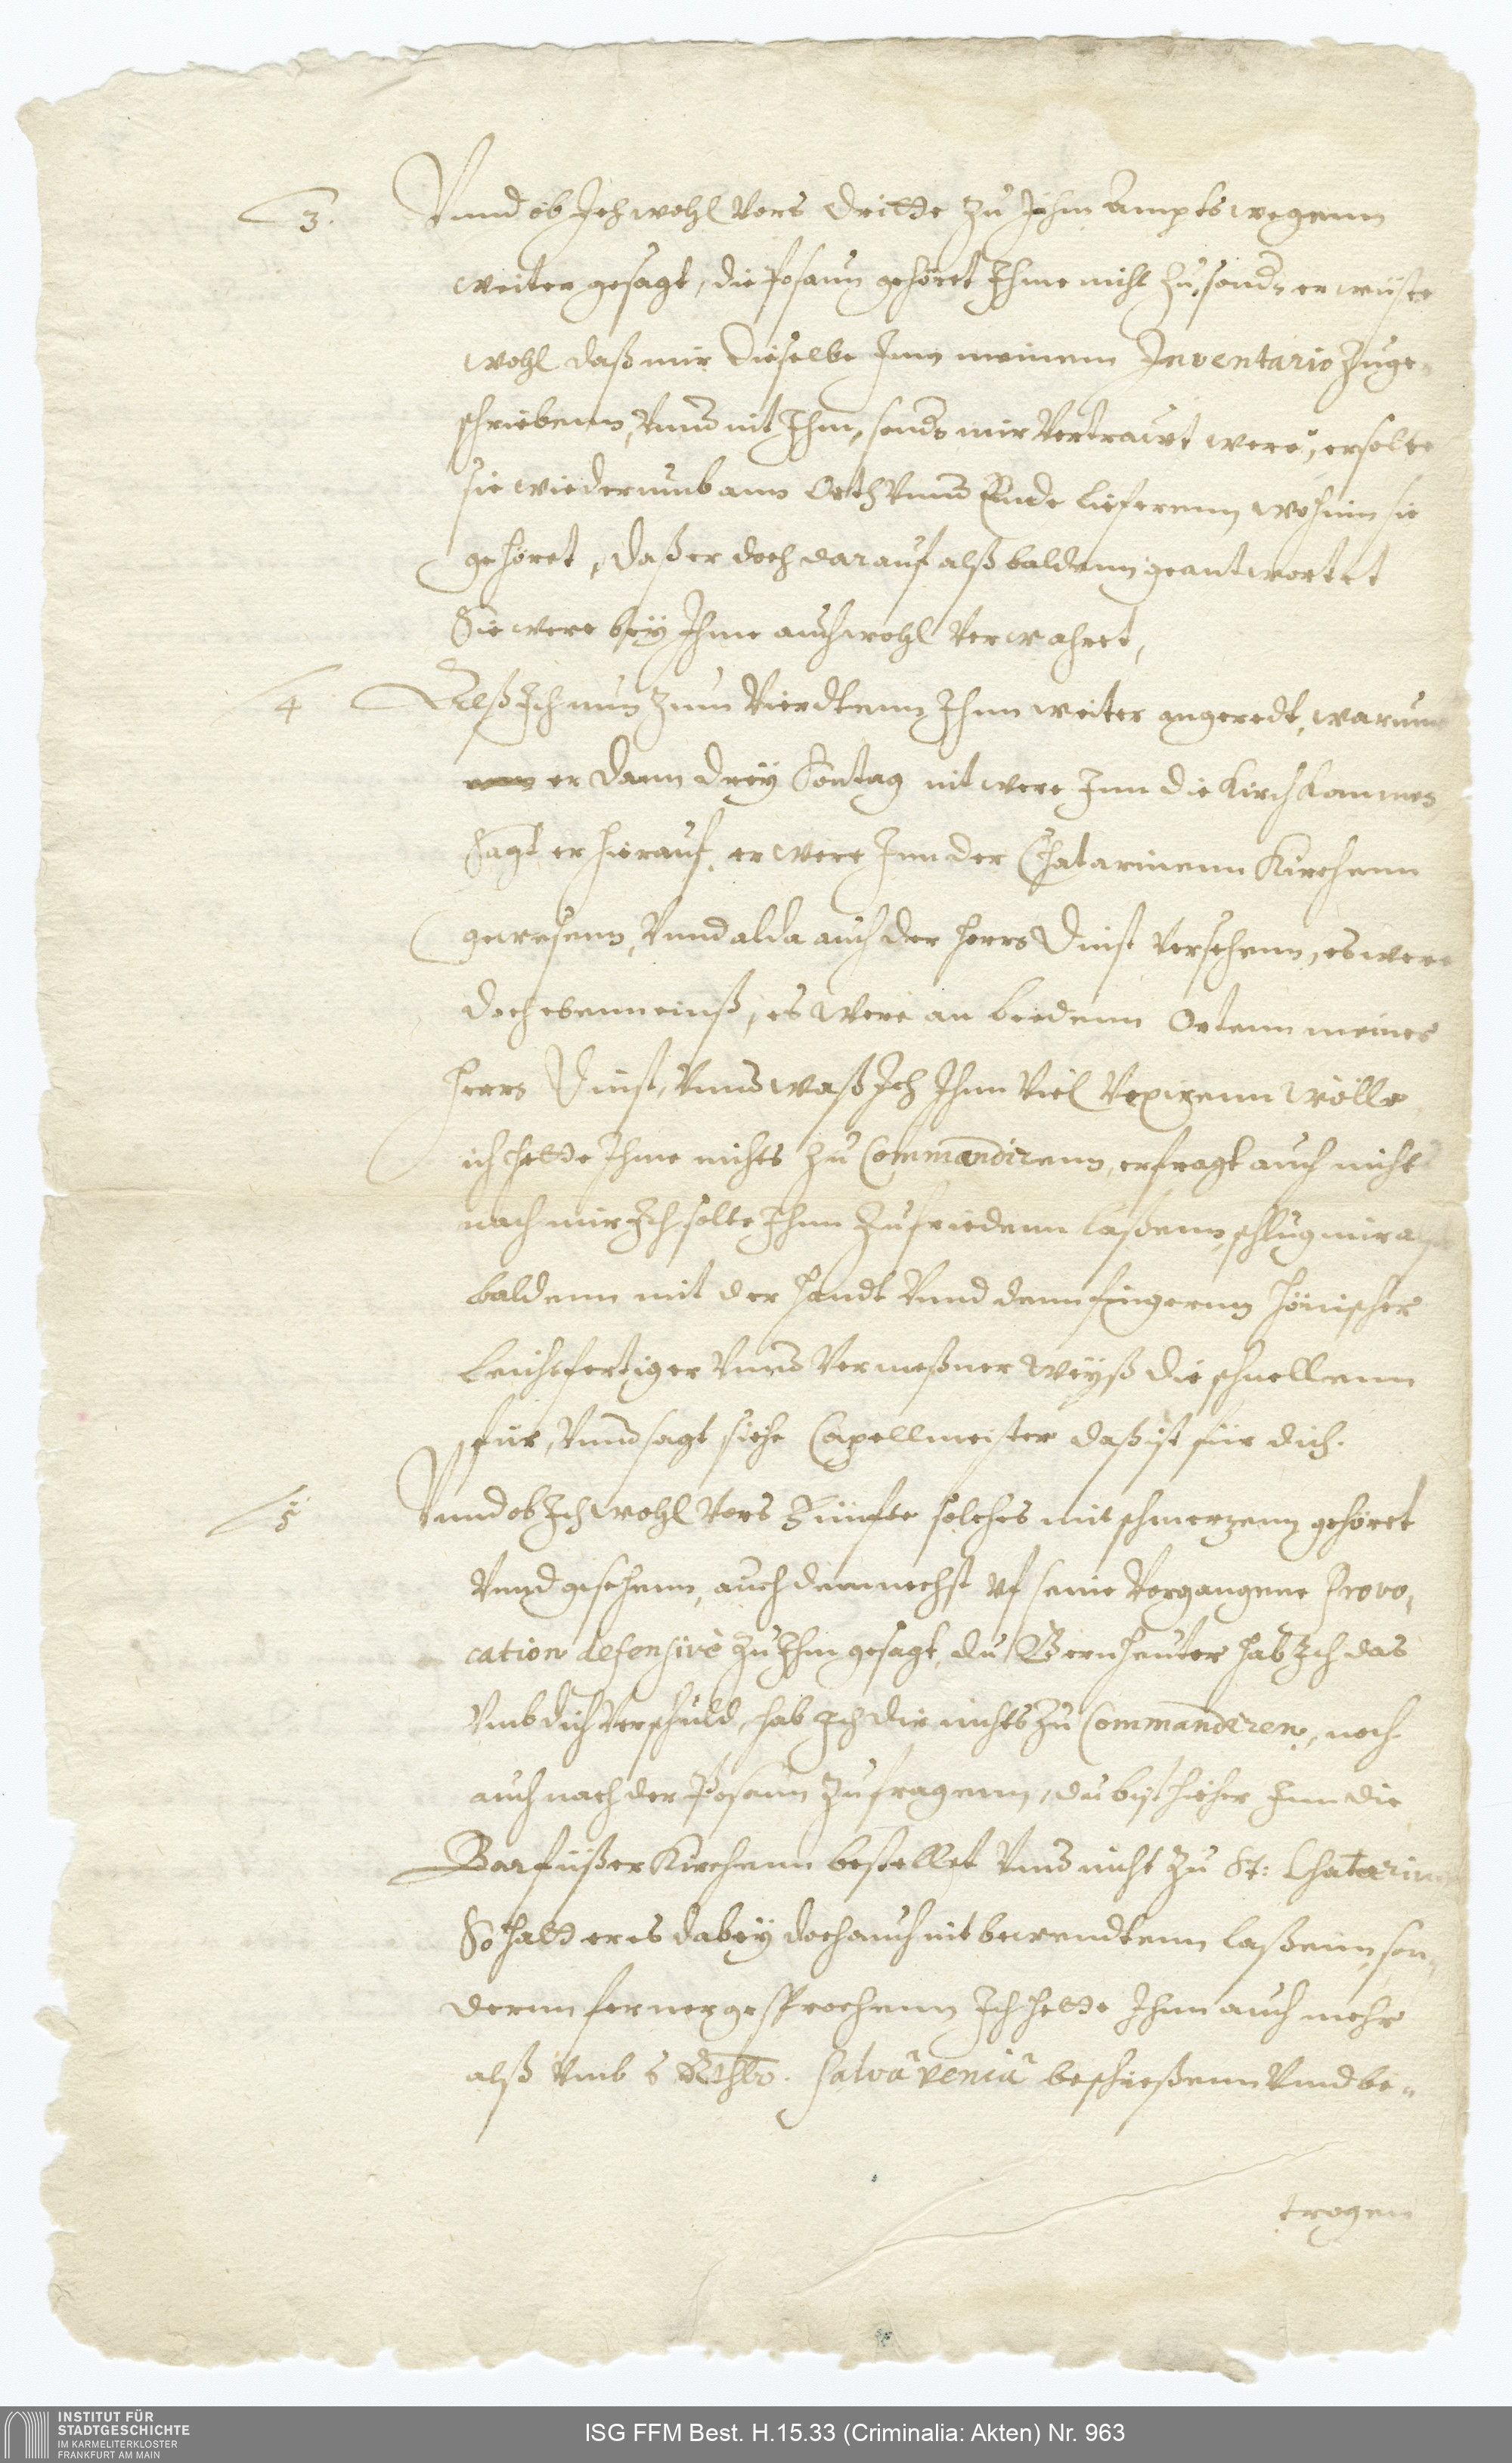 3. Vnnd ob Ich wohl Vors dritte zu Ihm Ampts wegenn
weiter gesagt, die Posaun gehöret Ihme nicht zu, sond. er wüste
wohl daß mir dieselbe Inn meinem Inventario zuge-
schriebenn, Vnnd nit Ihm, sond. mir Vertrawt were, er solte
sie wiederumb ann Orth Vnnd Ende lieferenn, wohin sie
gehöret, daß er doch darauf alß baldenn geantwortet
Sie were bey Ihme auch wohl Verwahret,
4 Alß Ich nun zum Vierdtenn Ihnn weiter angeredt, warumb
er dann drey Sontag nit were Inn die Kirch kommen,
Sagt er hierauf, er were Inn der Chatarinenn Kirchenn
gewesenn, Vnnd alda auch der Herrn Dinst Versehenn, es were
doch ebenn einß, es were an beedenn Ortenn meiner
Herrn Dinst, Vnnd waß Ich Ihnn Viel Vexirenn wölle
ich hette Ihme nichts zu Commandirenn, er fragt auch nichts
nach mir Ich solte Ihnn Zufriedenn laßenn, schlug mir alß
baldenn mit der Handt Vnnd denn fingernn hönischer
leichtfertiger Vnnd Vermeßner weyß die schnellenn
für, Vnnd sagt siehe Capellmeister daß ist für dich.
5 Vnnd ob Ich wohl Vors Fünfte solches mit schmerzenn gehöret
Vnnd gesehenn, auch demnechst vf seine Vorgangene Provo,
cation defensivè zu Ihm gesagt, du Bernheuter hab Ich das
Vmb dich Verschuld, hab Ich dir nichts zu Commandiren, noch
auch nach der Posaun zu fragenn, du bist hieher Inn die
Barfüßer Kirchenn bestellet Vnnd nicht zu St: Chatarinen
So hatt er es dabey doch auch nit bewendtenn laßenn, son,
dernn ferner gesprochenn Ich hette Ihnn auch mehr
alß Vmb 6 Rthlr. salvâ veniâ beschießenn Vnnd be-
trogen
INSTITUT FÜR
STADTGESCHICHTE
IM KARMELITERKLOSTER
FRANKFURT AM MAIN
ISG FFM Best. H.15.33 (Criminalia: Akten) Nr. 963